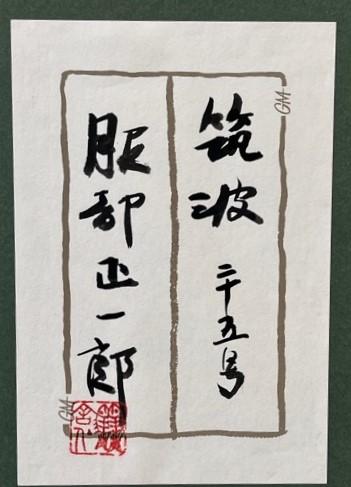 筑波
二十五号
服部正一郎
GM
GM